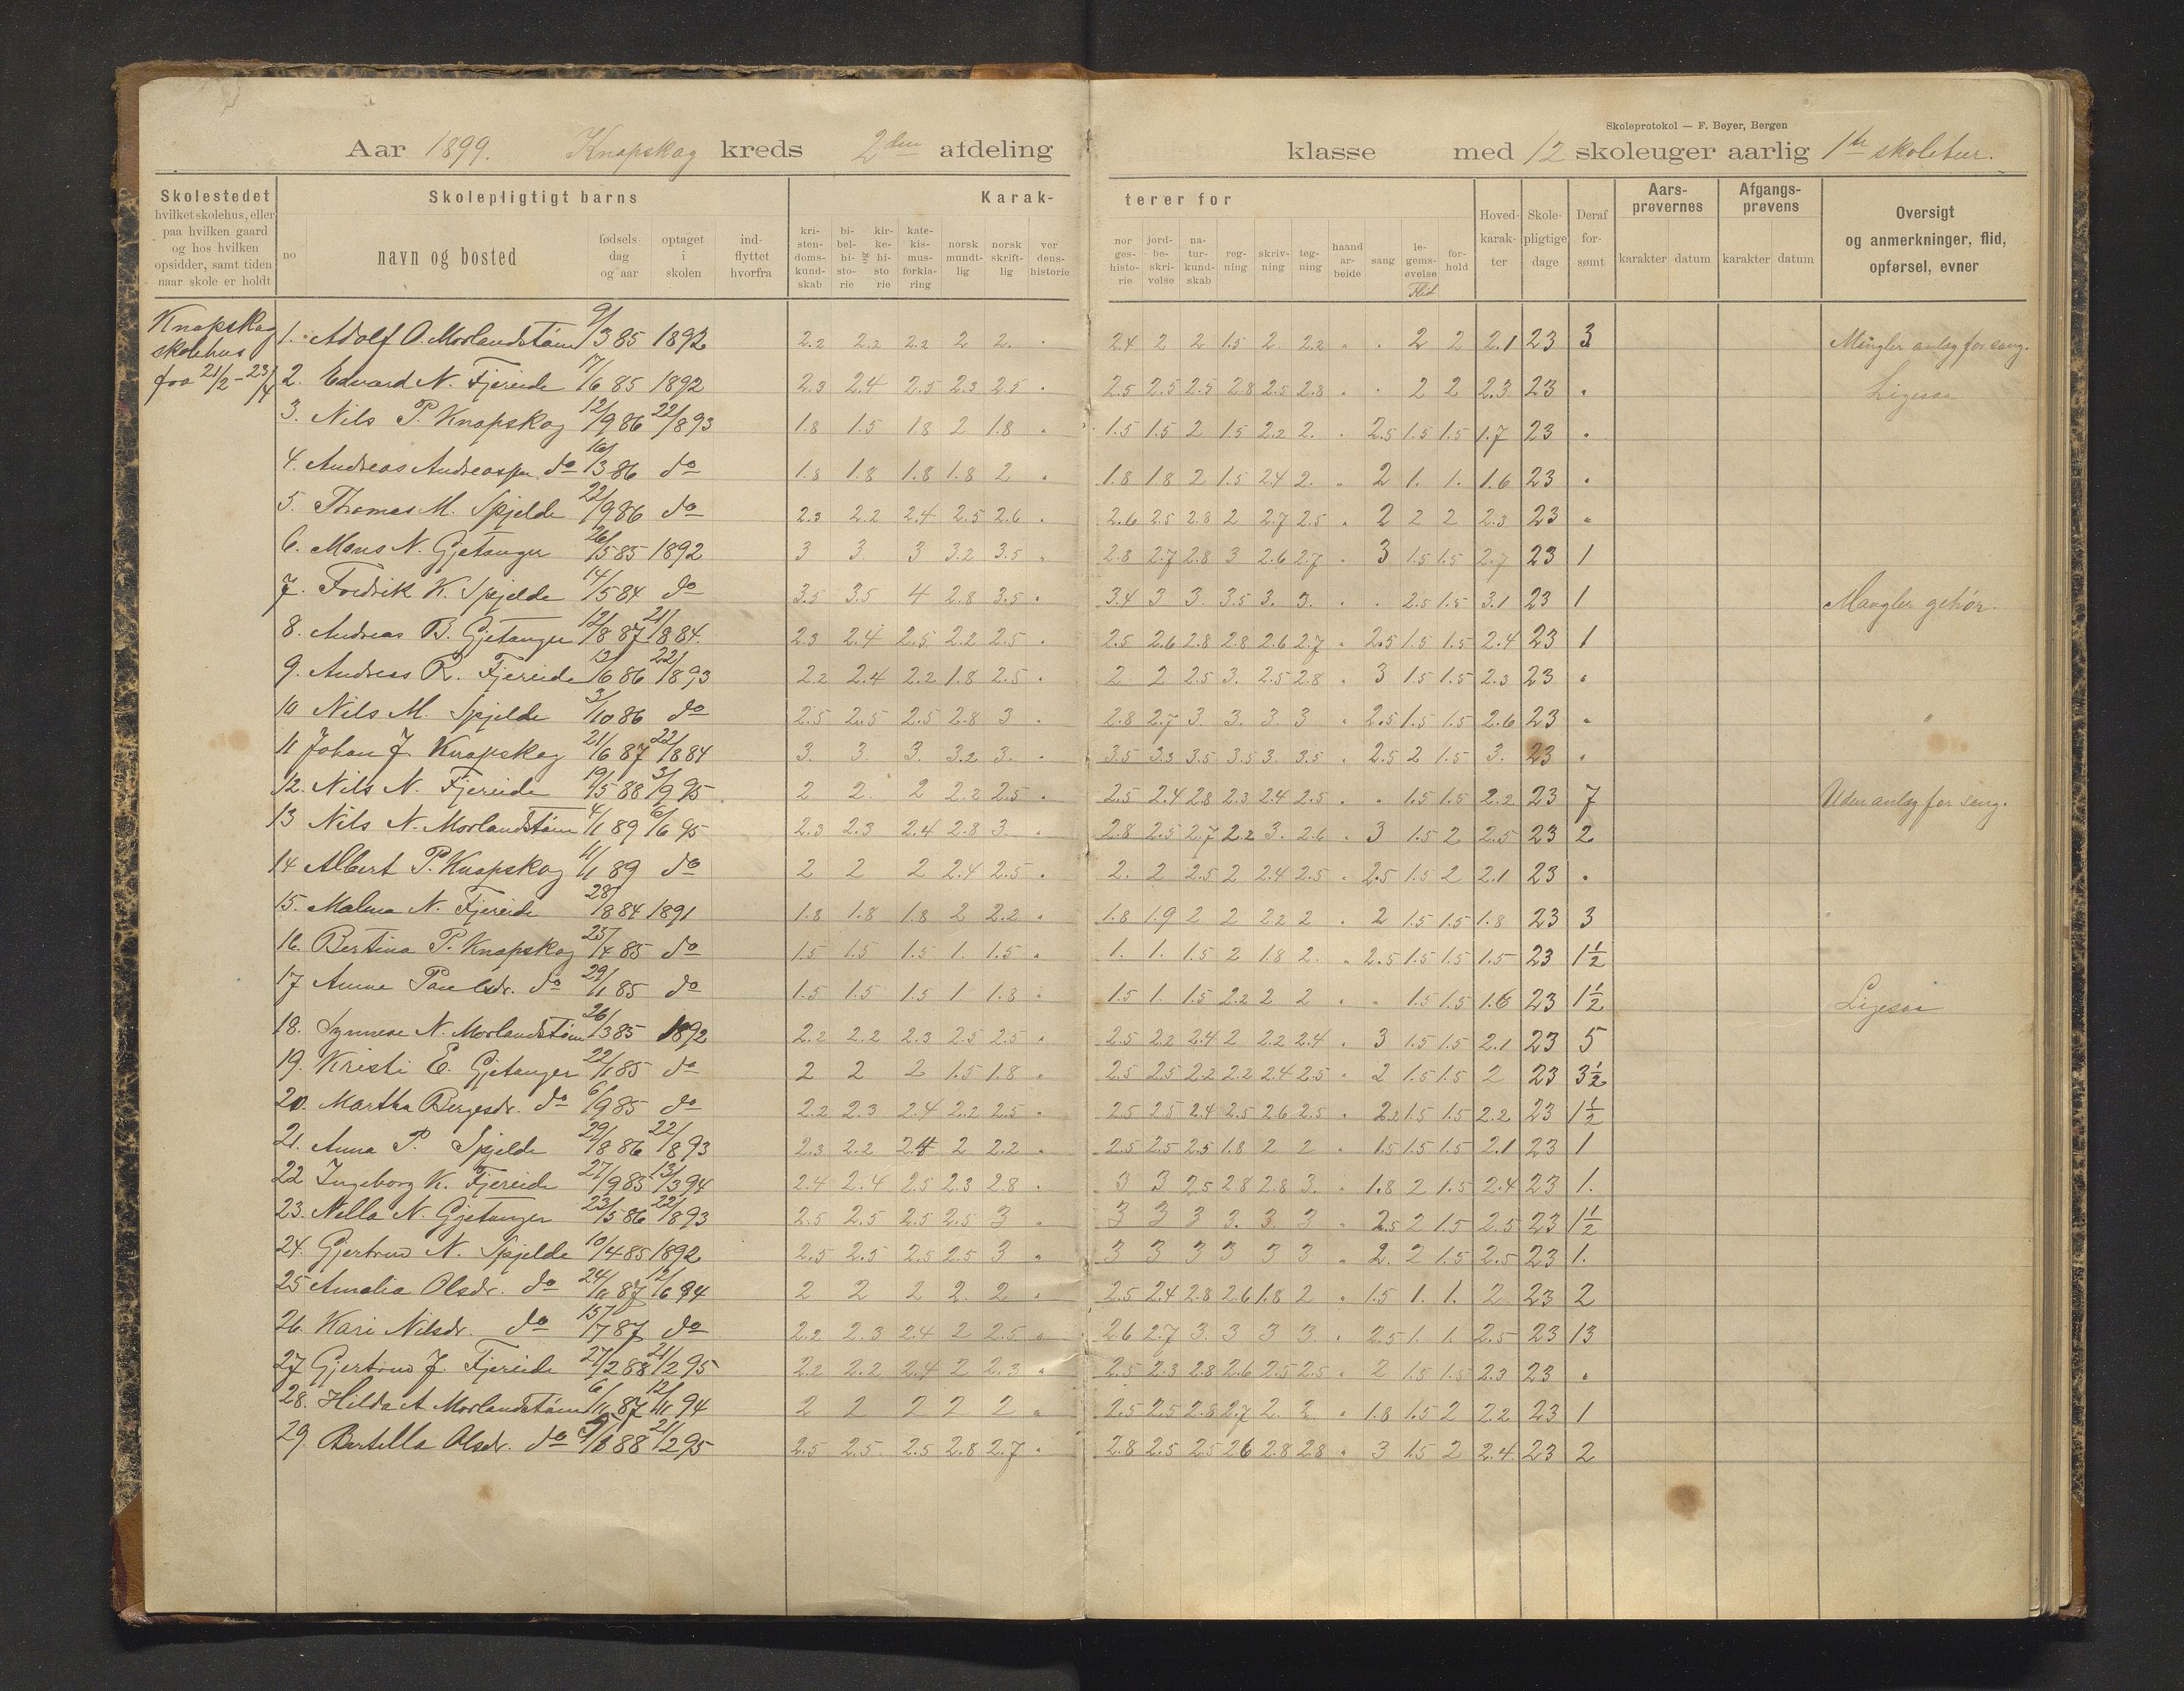 Skoleprotokol — F. Beyer, Bergen
Aar 1899. Knapskog kreds 2den afdeling klasse med 12 skoleuger aarlig 1ste skoletur.
Skolestedet
hvilket skolehus, eller
paa hvilken gaard
og hos hvilken
opsidder, samt tiden
naar skole er holdt
Skolepligtigt barns
no navn og bosted fødsels-dag og aar optaget i skolen ind-flyttet hvorfra
Karak-terer for
kri-sten-doms-kund-skab bi-bel-hi-sto-rie og kir-ke-hi-sto-rie kate-kis-mus-forkla-ring norsk mundt-lig norsk skrift-lig ver dens-historie
nor ges-histo-rie jord-be-skri-velse na-tur-kund-skab reg-ning skriv-ning teg-ning haand ar-beide sang le-gems-øvelse Flid for-hold
Hoved-karak-ter Skole-pligtige dage Deraf for-sømt
Aars-prøvernes karakter datum
Afgangs-prøvens karakter datum
Oversigt
og anmerkninger, flid,
opførsel, evner
Knapskog
skolehus
fra 21/2 - 23/4
1. Adolf O. Morlandstøm 9/3 85 1892 2.2 2.2 2.2 2 2. " 2.4 2 2 1.5 2 2.2 " " 2 2 2.1 23 3 Mangler anlæg for sang.
2. Edvard N. Fjereide 7/6 85 1892 2.3 2.4 2.5 2.3 2.5 " 2.5 2.5 2.5 2.8 2.5 2.8 " " 2 2 2.3 23 " Ligesaa
3. Nils P. Knapskog 12/9 86 22/8 93 1.8 1.5 1.8 2 1.8 " 1.5 1.5 2 1.5 2.2 2. " 2.5 1.5 1.5 1.7 23 "
4. Andreas Andreassen do 16/3 86 do 1.8 1.8 1.8 1.8 2 " 1.8 1.8 2 1.5 2.4 2. " 2 1. 1. 1.6 23 "
5. Thomas M. Spjelde 22/9 86 do 2.3 2.2 2.4 2.5 2.6 " 2.6 2.5 2.8 2 2.7 2.5 " 2 2 2 2.3 23 "
6. Mons N. Gjetanger 26/5 85 1892 3 3 3 3.2 3.5 " 2.8 2.7 2.8 3 2.6 2.7 " 3 1.5 1.5 2.7 23 1
7. Fredrik K. Spjelde 14/5 84 do 3.5 3.5 4 2.8 3.5 " 3.4 3 3. 3.5 3. 3. " " 2.5 1.5 3.1 23 1 Mangler gehør.
8. Andreas B. Gjetanger 12/8 87 21/8 84. 2.3 2.4 2.5 2.2 2.5 " 2.5 2.6 2.8 2.8 2.6 2.7 " 2.5 1.5 1.5 2.4 23 1
9. Andreas R. Fjereide 13/6 86 22/8 93 2.2 2.4 2.2 1.8 2.5 " 2 2 2.5 3. 2.5 2.8 " 3 1.5 1.5 2.3 23 "
10 Nils M. Spjelde 3/10 86 do 2.5 2.5 2.5 2.8 3 " 2.8 2.7 3. 3. 3. 3 " 2.5 1.5 1.5 2.6 23 "
11 Johan J. Knapskog 21/6 87 22/8 84 3. 3. 3. 3.2 3. " 3.5 3.3 3.5 3.5 3. 3.5 " 2.5 2 1.5 3. 23 "
12. Nils N. Fjereide 19/5 88 3/9 95 2 2. 2 2.2 2.5 " 2.5 2.4 2.8 2.3 2.4 2.5 " " 1.5 1.5 2.2 23 7 Uden anlæg for sang.
13 Nils N. Morlandstøm 4/1 89 6/6 95 2.3 2.3 2.4 2.8 3 " 2.8 2.5 2.7 2.2 3. 2.6 " 3 1.5 2 2.5 23 2
14 Albert P. Knapskog 4/1 89 do 2 2 2 2.4 2.5 " 2. 2 2.5 2 2.4 2.5 " 2.5 1.5 2 2.1 23 "
15. Malena N. Fjereide 28/8 84 1891 1.8 1.8 1.8 2 2.2 " 1.8 1.9 2 2 2.2 2 " 2 1.5 1.5 1.8 23 3
16. Bertina P. Knapskog 25/4 85 do 1.5 1.5 1.5 1. 1.5 " 1. 1. 1.5 2 1.8 2. " 2.5 1.5 1.5 1.5 23 1½
17 Anna Paulsdr. do 29/11 85 do 1.5 1.5 1.5 1 1.8 " 1.5 1. 1.5 2.2 2 2 " " 1.5 1.5 1.6 23 1½ Ligesaa
18. Synneve N. Morlandstøm 26/3 85 1892 2.2 2.2 2.3 2.5 2.5 " 2.5 2.2 2.4 2 2.2 2.4 " 3 1.5 1.5 2.1 23 5
19. Kristi E. Gjetanger 22/1 85 do 2 2 2 1.5 1.8 " 2.5 2.5 2.2 2.2 2.4 2.5 " 2 1.5 1.5 2 23 3½
20. Martha Bergesdr. do 6/9 85 do 2.2 2.3 2.4 2.2 2.5 " 2.5 2.5 2.4 2.5 2.6 2.5 " 2.2 1.5 1.5 2.2 23 1½
21. Anna P. Spjelde 29/8 86 22/8 93 2.3 2.2 2.4 2 2.2 " 2.5 2.5 2.5 1.8 2 2 " 1.5 1.5 1.5 2.1 23 1
22 Ingeborg K. Fjereide 27/9 85 13/3 94 2.4 2.4 2.5 2.3 2.8 " 3 3 2.5 2.8 2.8 3. " 1.8 2 1.5 2.4 23 1.
23. Nilla N. Gjetanger 23/5 86 22/8 93 2.5 2.5 2.5 2.5 3 " 3 3 3 3. 3. 3 " 2.5 2 1.5 2.5 23 1½
24. Gjertrud N. Spjelde 10/4 85 1892 2.5 2.5 2.5 2.5 3 " 3 3 3 3 3 3 " 2. 2 1.5 2.5 23 1.
25 Amalia Olsdr. do 24/11 87 12/6 94 2 2 2 2. 2 " 2.5 2.4 2.8 2.6 1.8 2 " 1.5 1. 1. 2 23 2
26. Kari Nilsdr. do 15/7 87 do 2.2 2.3 2.4 2 2.5 " 2.6 2.7 3. 3 3 3. " 2.5 1. 1. 2.5 23 13
27 Gjertrud J. Fjereide 27/2 88 21/2 95 2.2 2.2 2.4 2 2.3 " 2.5 2.3 2.8 2.6 2.5 2.5 " 2 1.5 1.5 2.3 23 "
28. Hilda A Morlandstøm 6/11 87 12/11 94 2 2 2 2 2 " 2.5 2.5 2.8 2.7 2. 2 " 1.8 1.5 2 2.2 23 1
29. Bertilla Olsdr. do 88 21/2 95 2.5 2.5 2.5 2.8 2.7 " 2.8 2.5 2.5 2.6 2.8 2.8 " 3 1.5 2 2.4 23 2